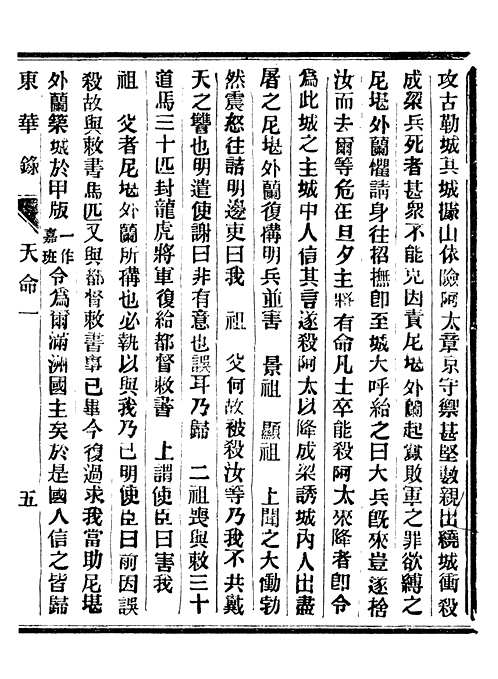 攻古勒城其城據山依險阿太章京守禦甚堅數親出繞城衝殺
成梁兵死者甚衆不能克因責尼堪外蘭起釁敗軍之罪欲縛之
尼堪外蘭懼請身往招撫卽至城大呼紿之曰大兵旣來豈遂捨
汝而去爾等危在旦夕主將有命凡士卒能殺阿太來降者卽令
爲此城之主城中人信其言遂殺阿太以降成梁誘城內人出盡
屠之尼堪外蘭復構明兵並害　景祖　顯祖　上聞之大慟勃
然震怒往詰明邊吏曰我　祖　父何故被殺汝等乃我不共戴
天之讐也明遣使謝曰非有意也誤耳乃歸　二祖喪與敕三十
道馬三十匹封龍虎將軍復給都督敕書　上謂使臣曰害我
祖　父者尼堪外蘭所構也必執以與我乃已明使臣曰前因誤
殺故與敕書馬匹又與都督敕書事已畢今復過求我當助尼堪
外蘭築城於甲版一作嘉班令爲爾滿洲國主矣於是國人信之皆歸
東華錄　天命一　五